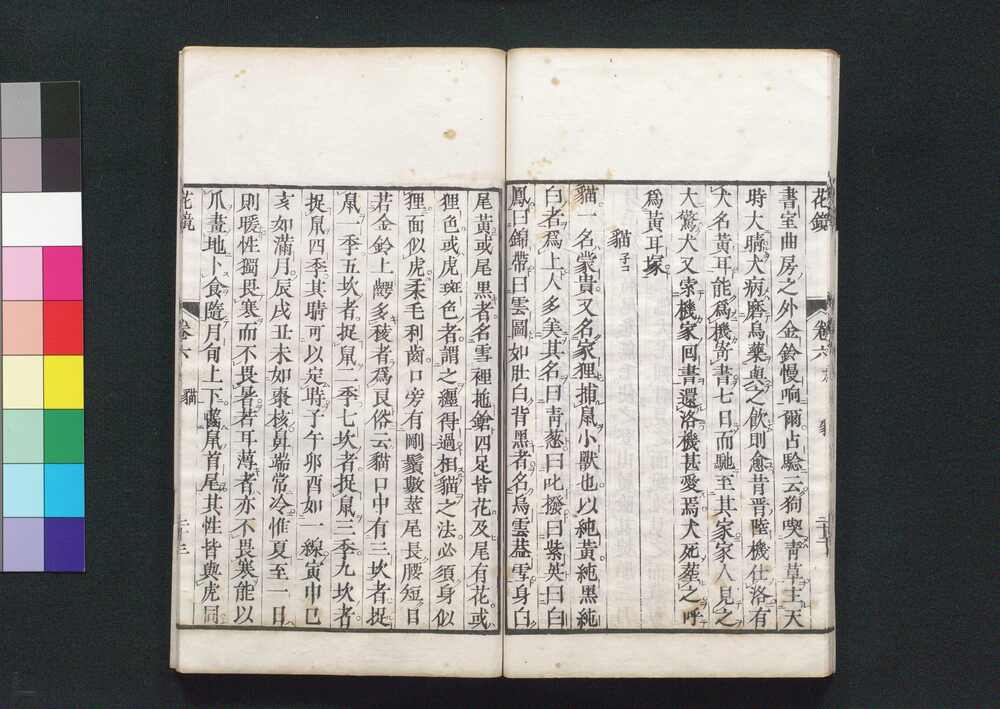 花鏡 卷六
書室曲房之外金鈴慢响爾占驗云狗喫靑草主天
時大晴犬病磨烏藥與之飲則愈昔晋陸機仕洛有
犬名黃耳能爲機寄書七日而馳至其家家人見之
大驚犬又索機家囘書還洛機甚愛焉犬死葬之呼
爲黃耳塚
貓 子コ
貓一名蒙貴又名家狸捕鼠小獸也以純黃純黑純
白者爲上人多美其名曰靑葱曰叱撥曰紫英曰白
鳳曰錦帶曰雲圖如肚白背黑者名烏雲葢雪身白
尾黃或尾黑者名雪裡拖鎗四足皆花及尾有花或
狸色或虎斑色者謂之纏得過相貓之法必須身似
狸面似虎柔毛利齒口旁有剛鬚數莖尾長腰短目
若金鈴上齶多稜者爲良俗云貓口中有三坎者捉
鼠一季五坎者捉鼠二季七坎者捉鼠三季九坎者
捉鼠四季其睛可以定時子午卯酉如一線寅申巳
亥如滿月辰戌丑未如棗核鼻端常冷惟夏至一日
則暖性獨畏寒而不畏暑若耳薄者亦不畏寒能以
爪畫地卜食隨月旬上下嚙鼠首尾其性皆與虎同
花鏡 卷六 貓 二十三